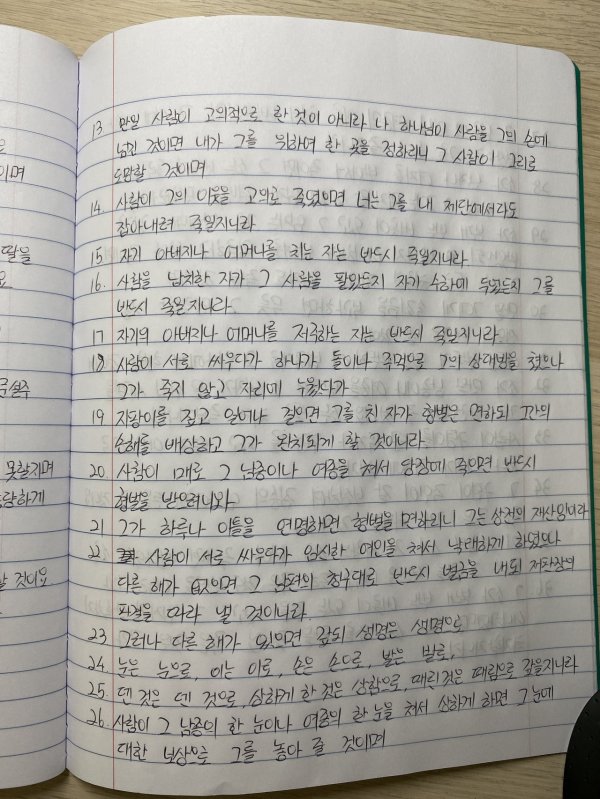 은
이며
딸을
요
큰설주
못할지며
당하게
할 것이요
13 만일 사람이 고의적으로 한 것이 아니라 나 하나님이 사람을 그의 손에
넘긴 것이면 내가 그를 위하여 한 곳을 정하리니 그 사람이 그리로
도망할 것이며
14. 사람이 그의 이웃을 고의로 죽였으면 너는 그를 내 제단에서라도
잡아내려 죽일지니라
15 자기 아버지나 어머니를 치는 자는 반드시 죽일지니라
16. 사람을 납치한 자가 그 사람을 팔았든지 자기 수하에 두었든지 그를
반드시 죽일지니라.
17 자기의 아버지나 어머니를 저주하는 자는 반드시 죽일지니라.
18 사람이 서로 싸우다가 하나가 돌이나 주먹으로 그의 상대방을 쳤으나
그가 죽지 않고 자리에 누웠다가
19 지팡이를 짚고 일어나 걸으면 그를 친 자가 형벌은 면하되 그간의
손해를 배상하고 그가 완치되게 할 것이니라.
20. 사람이 매로 그 남종이나 여종을 쳐서 당장에 죽으면 반드시
형벌을 받으려니와
21 그가 하루나 이틀을 연명하면 형벌을 면하리니 그는 상전의 재산임이라
22 사람이 서로 싸우다가 임신한 여인을 쳐서 낙태하게 하였으나
다른 해가 없으면 그 남편의 청구대로 반드시 벌금을 내되 재판장의
판결을 따라 낼 것이니라
23 그러나 다른 해가 있으면 갚되 생명은 생명으로
24. 눈은 눈으로, 이는 이로, 손은 손으로, 발은 발로,
25. 덴 것은 덴 것으로, 상하게 한 것은 상함으로, 때린 것은 때림으로 갚을지니라
26. 사람이 그 남종의 한 눈이나 여종의 한 눈을 쳐서 상하게 하면 그 눈에
대한 보상으로 그를 놓아 줄 것이며